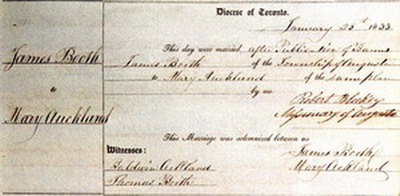 Diocese of Toronto.
January 25th 1833.
James Booth
to
Mary Auckland
This day were married, after Publication of Banns
James Booth of the Township of Augusta
to Mary Auckland of the same place
by me
Robert Blakey
Missionary of Augusta
This Marriage was solemnized between us
James Booth
Mary Ackland
Witnesses:
Baldwin Ackland
Thomas Booth